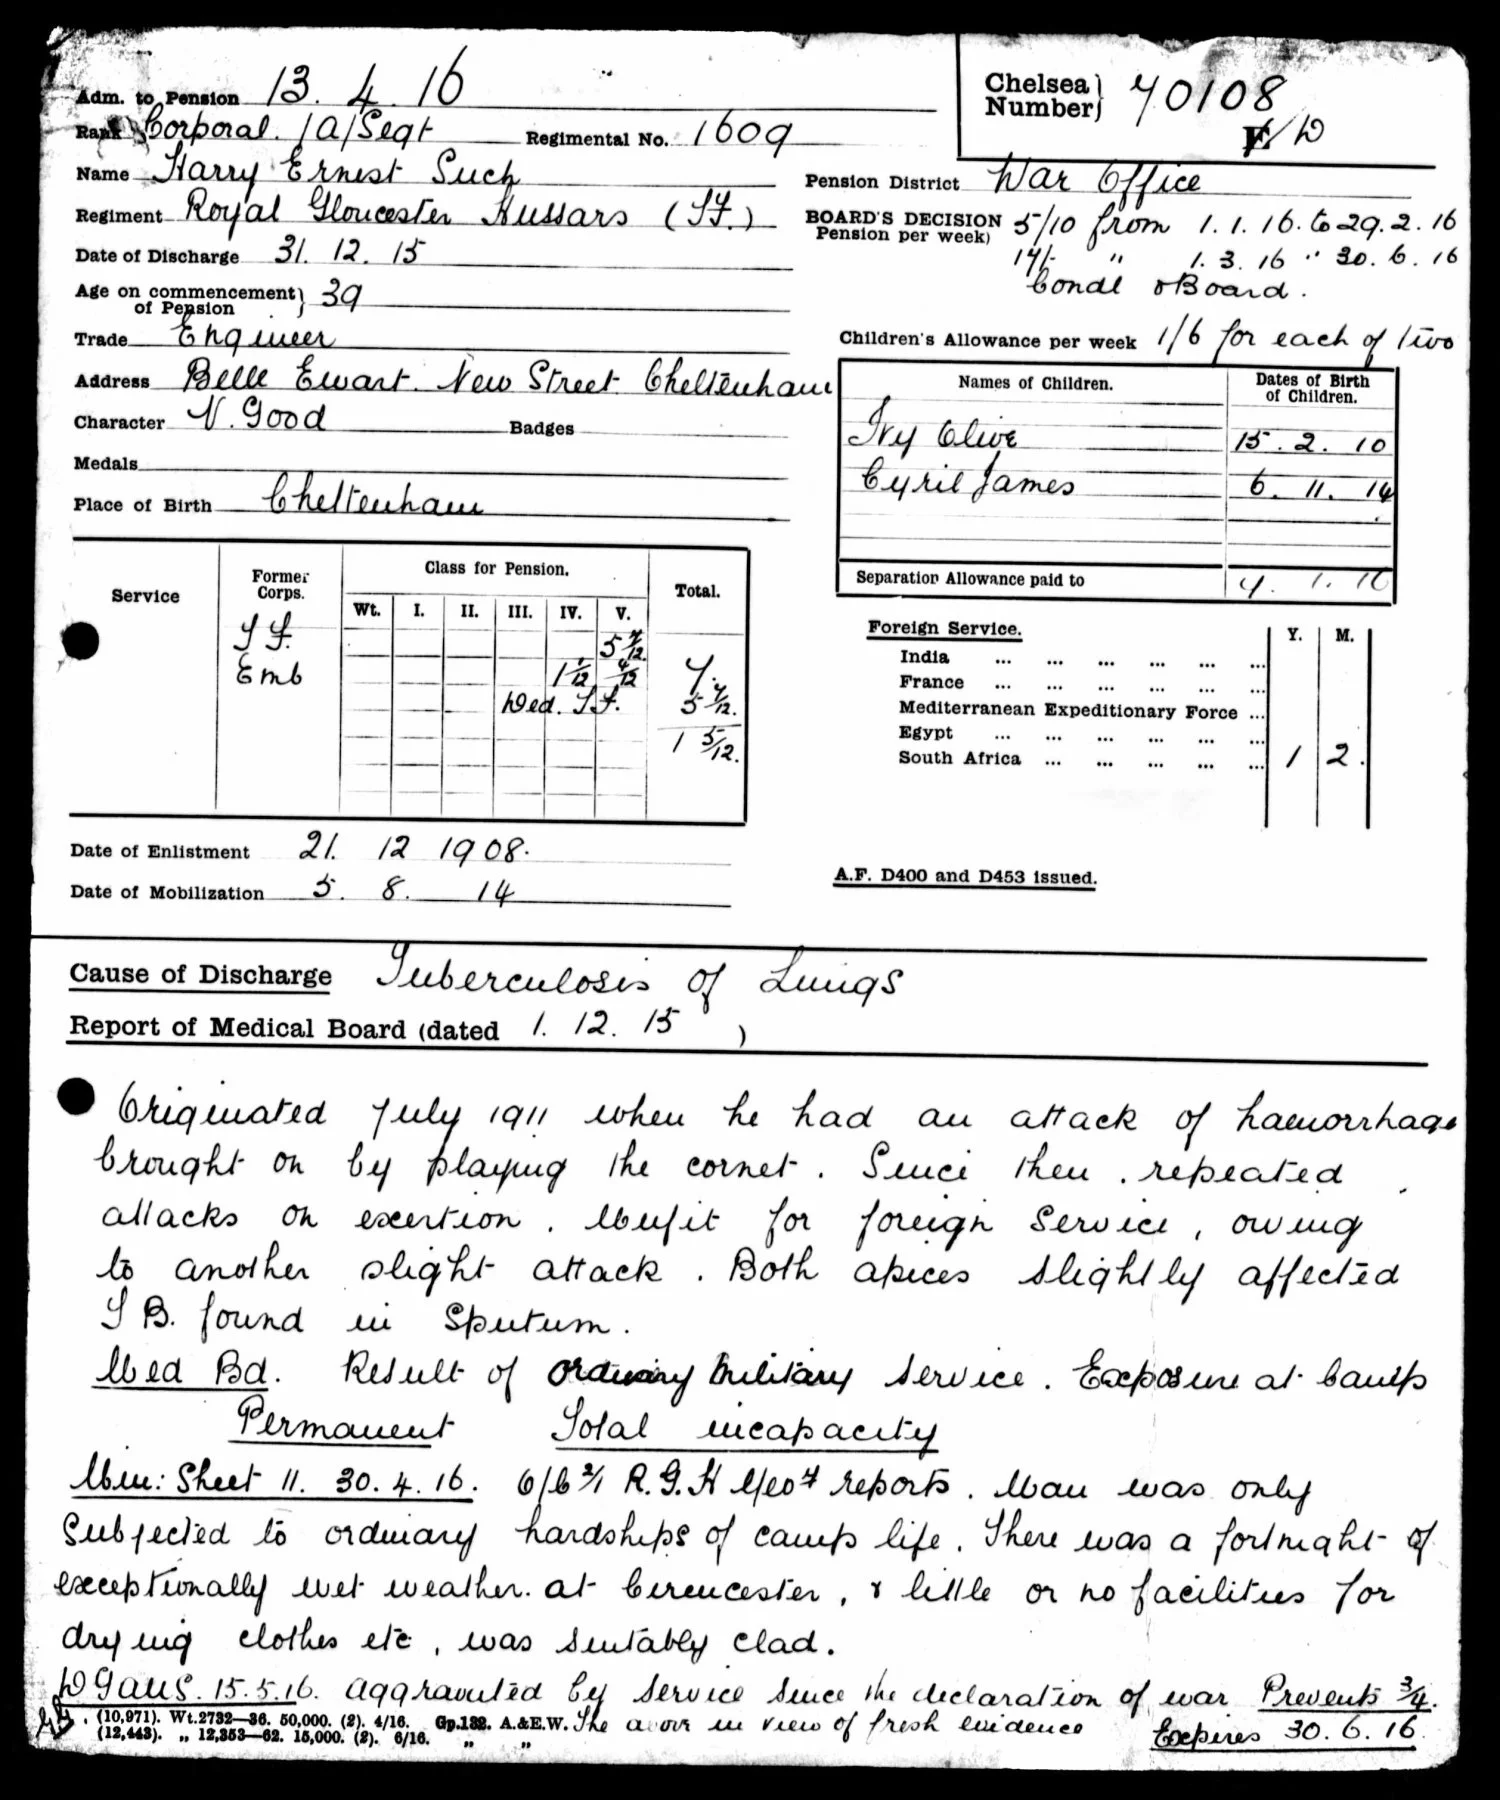 Adm. to Pension 13. 4. 16
Chelsea Number 70108
E/D
Rank Corporal /A/Segt Regimental No. 1609
Name Harry Ernest Such
Pension District War Office
Regiment Royal Gloucester Hussars (T.F.)
BOARD'S DECISION Pension per week) 5/10 from 1.1.16. to 29.2.16
14/- " 1.3.16 " 30.6.16
Condl Board.
Date of Discharge 31. 12. 15
Age on commencement of Pension } 39
Trade Engineer
Children's Allowance per week 1/6 for each of two
Address Belle Ewart. New Street. Cheltenham
Names of Children. Dates of Birth of Children.
Character V. Good Badges
Ivy Olive 15. 2. 10
Medals
Cyril James 6. 11. 14
Place of Birth Cheltenham
Separation Allowance paid to 7. 1. 16
Service Former Corps. Class for Pension. Total.
Wt. I. II. III. IV. V.
T F. 5 7/12
Emb 1 1/12 4/12 7.
Ded. T F. 5 7/12.
1 5/12.
Foreign Service. Y. M.
India ... ... ... ... ... ...
France ... ... ... ... ... ...
Mediterranean Expeditionary Force ...
Egypt ... ... ... ... ... ...
South Africa ... ... ... ... ... 1 2.
Date of Enlistment 21. 12 1908.
Date of Mobilization 5. 8. 14
A.F. D400 and D453 issued.
Cause of Discharge Tuberculosis of Lungs
Report of Medical Board (dated 1. 12. 15 )
Originated July 1911 when he had an attack of haemorrhage
brought on by playing the cornet. Since then, repeated
attacks on exertion. Unfit for foreign Service, owing
to another slight attack. Both apices slightly affected
T B. found in Sputum.
Med Bd. Result of ordinary Military service. Exposure at camps
Permanent Total incapacity
Min: Sheet 11. 30. 4. 16. R.G.H reports. Man was only
subjected to ordinary hardships of camp life. There was a fortnight of
exceptionally wet weather. at Cirencester, & little or no facilities for
drying clothes etc, was suitably clad.
DGAMS. 15.5.16. aggravated by service since the declaration of war Prevents 3/4.
(10,971). Wt.2732—36. 50,000. (2). 4/16. Gp.132. A.&E.W. The above in view of fresh evidence
(12,443). „ 12,353—62. 15,000. (2). 6/16. „ „
Expires 30. 6. 16.